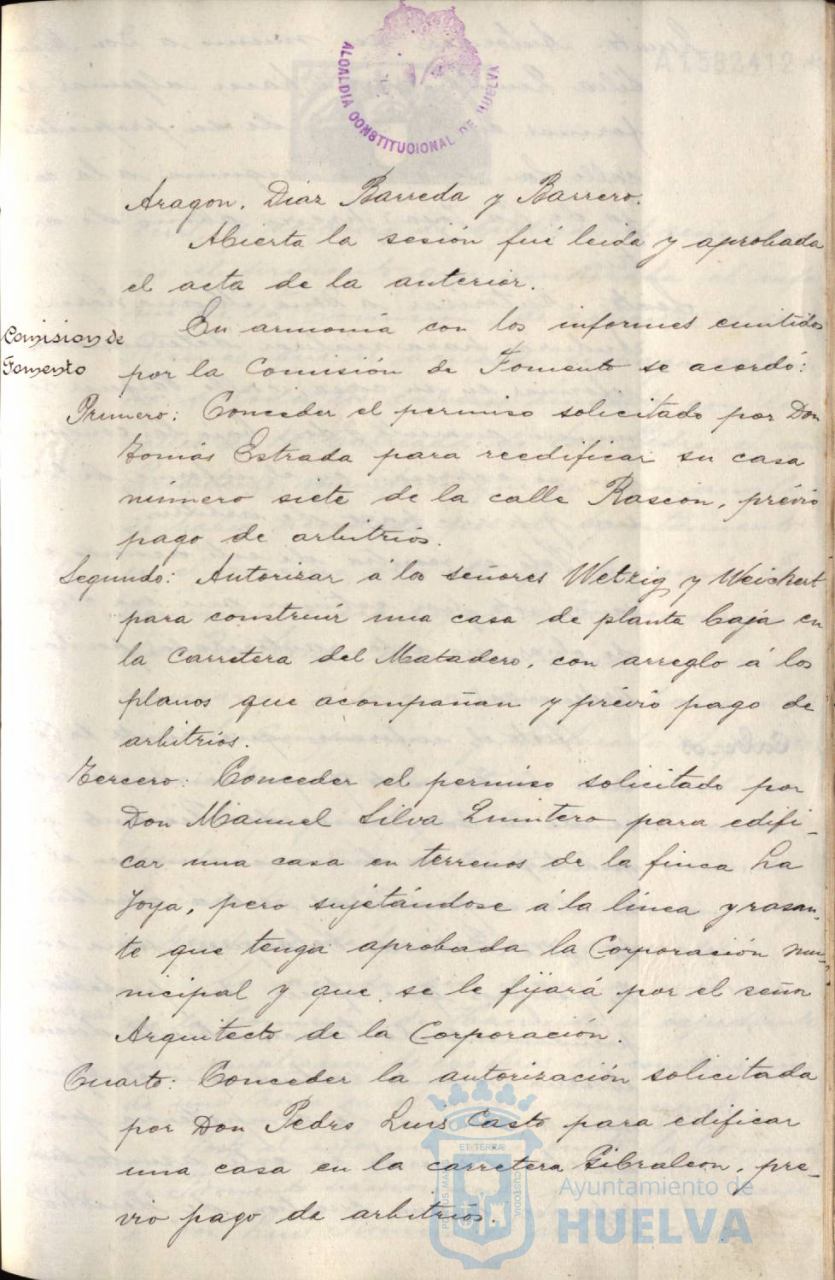 ALCALDIA CONSTITUCIONAL DE HUELVA
A1582412
Aragon, Diaz Barreda y Barrero.
Abierta la sesión fué leida y aprobada
el acta de la anterior.
Comision de
Fomento
En armonía con los informes emitidos
por la Comisión de Fomento se acordó:
Primero: Conceder el permiso solicitado por Don
Tomás Estrada para reedificar su casa
número siete de la calle Rascon, prévio
pago de arbitrios.
Segundo: Autorizar á los señores Wetzig y Weickert
para construir una casa de planta baja en
la Carretera del Matadero, con arreglo á los
planos que acompañan y prévio pago de
arbitrios.
Tercero: Conceder el permiso solicitado por
Don Manuel Silva Quintero para edifi-
car una casa en terrenos de la finca La
Joya, pero sujetándose á la línea y rasan-
te que tenga aprobada la Corporación mu-
nicipal y que se le fijará por el señor
Arquitecto de la Corporación.
Cuarto: Conceder la autorización solicitada
por Don Pedro Luis Casto para edificar
una casa en la carretera Gibraleon, pre-
vio pago de arbitrios.
PORTUS MARIS ET TERRA CUSTODIA
Ayuntamiento de
HUELVA